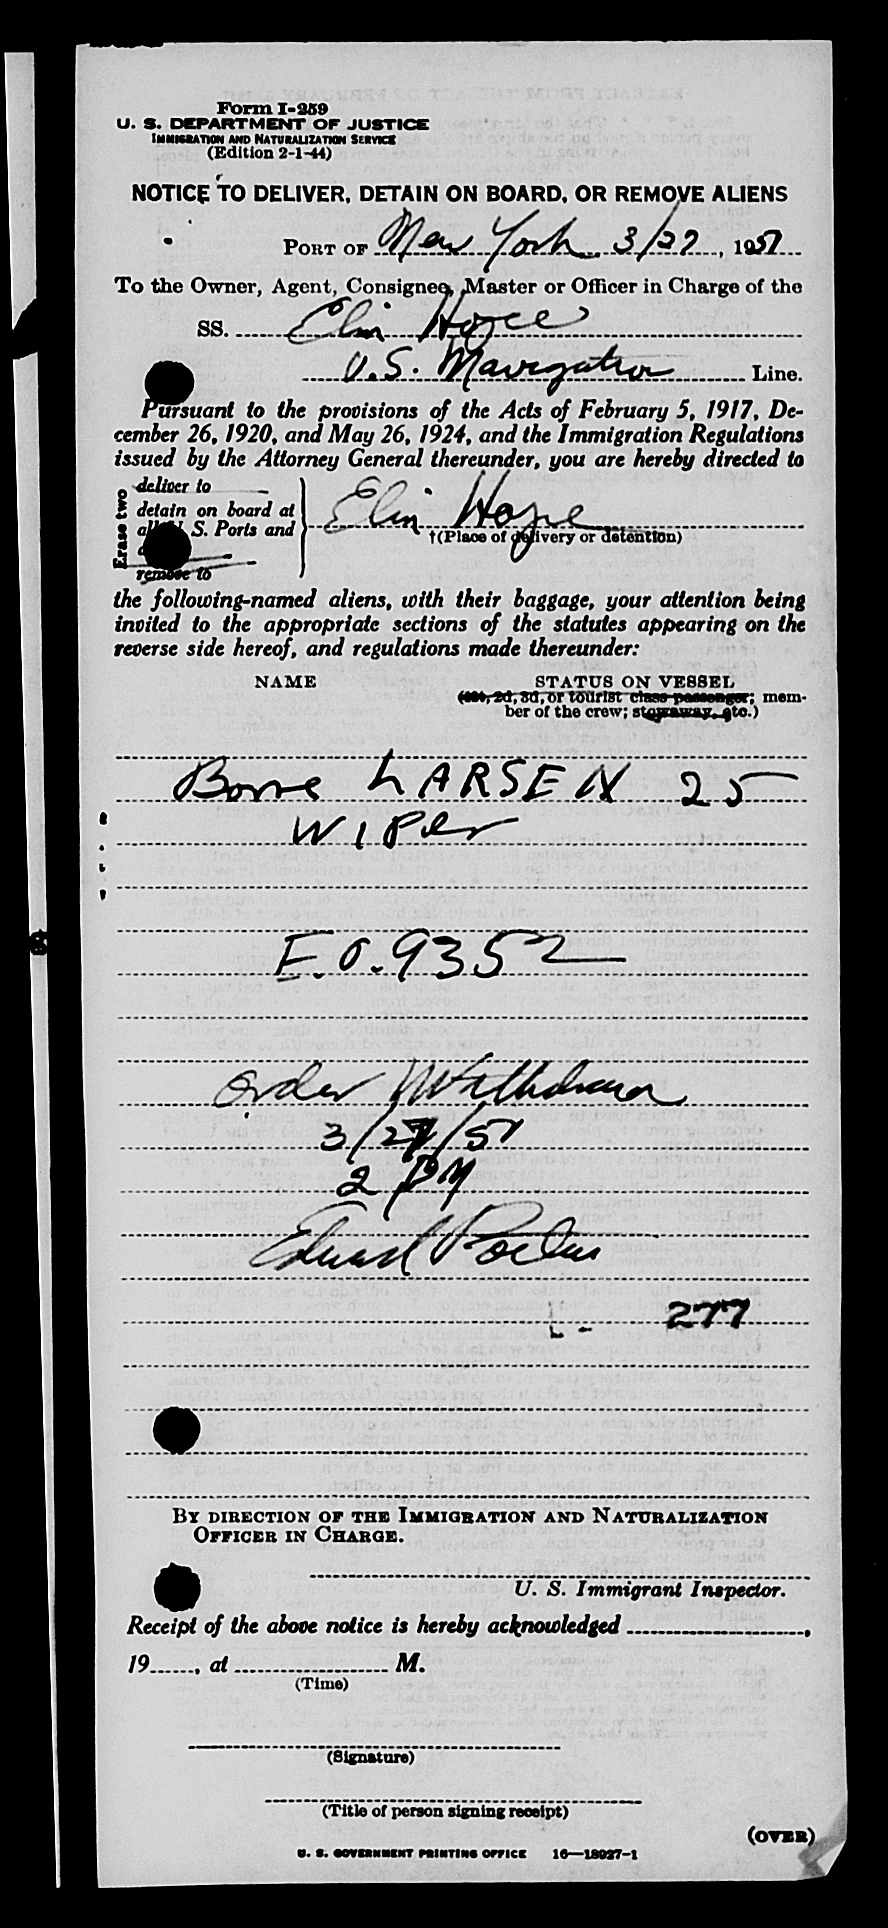 Form I-259
U. S. DEPARTMENT OF JUSTICE
IMMIGRATION AND NATURALIZATION SERVICE
(Edition 2-1-44)
NOTICE TO DELIVER, DETAIN ON BOARD, OR REMOVE ALIENS
PORT OF New York 3/27, 1951
To the Owner, Agent, Consignee, Master or Officer in Charge of the
SS. Elin Hope
U.S. Navigation Line.
Pursuant to the provisions of the Acts of February 5, 1917, De-
cember 26, 1920, and May 26, 1924, and the Immigration Regulations
issued by the Attorney General thereunder, you are hereby directed to
Erase two
deliver to
detain on board at
all U. S. Ports and
remove to
Elin Hope
†(Place of delivery or detention)
the following-named aliens, with their baggage, your attention being
invited to the appropriate sections of the statutes appearing on the
reverse side hereof, and regulations made thereunder:
NAME STATUS ON VESSEL
(1st, 2d, 3d, or tourist class passenger; mem-
ber of the crew; stowaway, etc.)
LARSEN 25
Wiper
E.O. 9352
Order Withdrawn
3/27/51
2 PM
Edward
277
BY DIRECTION OF THE IMMIGRATION AND NATURALIZATION
OFFICER IN CHARGE.
U. S. Immigrant Inspector.
Receipt of the above notice is hereby acknowledged
19, at M.
(Time)
(Signature)
(Title of person signing receipt)
(OVER)
U. S. GOVERNMENT PRINTING OFFICE 16—18027-1